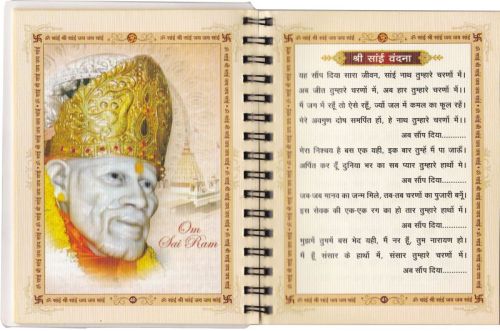 ॐ सांई श्री सांई जय जय सांई
Om
Sai Ram
ॐ सांई श्री सांई जय जय सांई
ॐ सांई श्री सांई जय जय सांई
श्री सांई वंदना
यह सौंप दिया सारा जीवन, सांई नाथ तुम्हारे चरणों में।
अब जीत तुम्हारे चरणों में, अब हार तुम्हारे चरणों में।।
मैं जग में रहूँ तो ऐसे रहूँ, ज्यों जल में कमल का फूल रहें।
मेरे अवगुण दोष समर्पित हों, हे नाथ तुम्हारे चरणों में।।
अब सौंप दिया...........
मेरा निश्चय है बस एक यही, इक बार तुम्हें मैं पा जाऊँ।
अर्पित कर दूँ दुनिया भर का सब प्यार तुम्हारे हाथों में।
अब सौंप दिया...........
जब-जब मानव का जन्म मिले, तब-तब चरणों का पुजारी बनूँ।
इस सेवक की एक-एक रग का हो तार तुम्हारे हाथों में।
अब सौंप दिया...........
मुझमें तुममें बस भेद यही, मैं नर हूँ, तुम नारायण हो।
मैं हूँ संसार के हाथों में, संसार तुम्हारे चरणों में।
अब सौंप दिया...........
ॐ सांई श्री सांई जय जय सांई